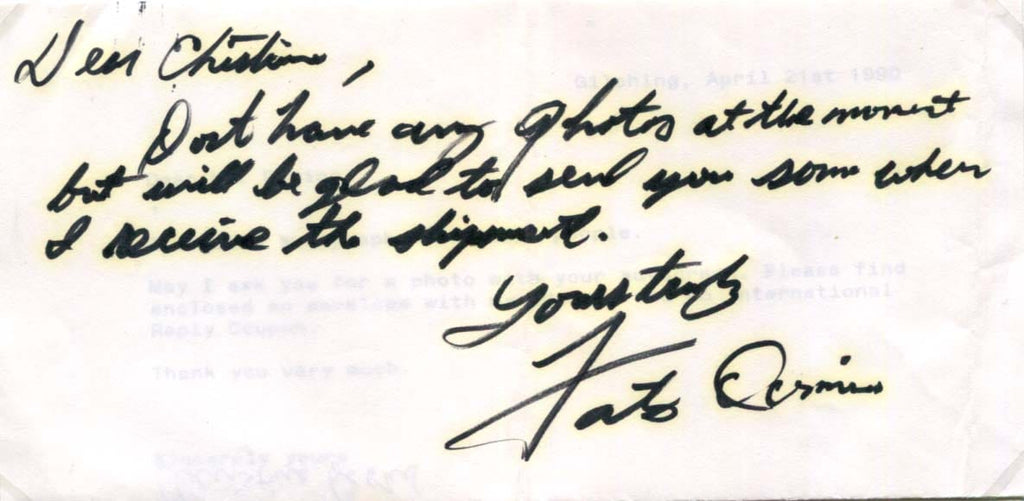 Dear Christine,
Gilching, April 21st 1990
Dont have any photos at the moment
but will be glad to send you some when
I receive the shipment.
May I ask you for a photo with your Please find
enclosed an envelope with International
Reply Coupon.
Yours truly
Thank you very much
Sincerely yours